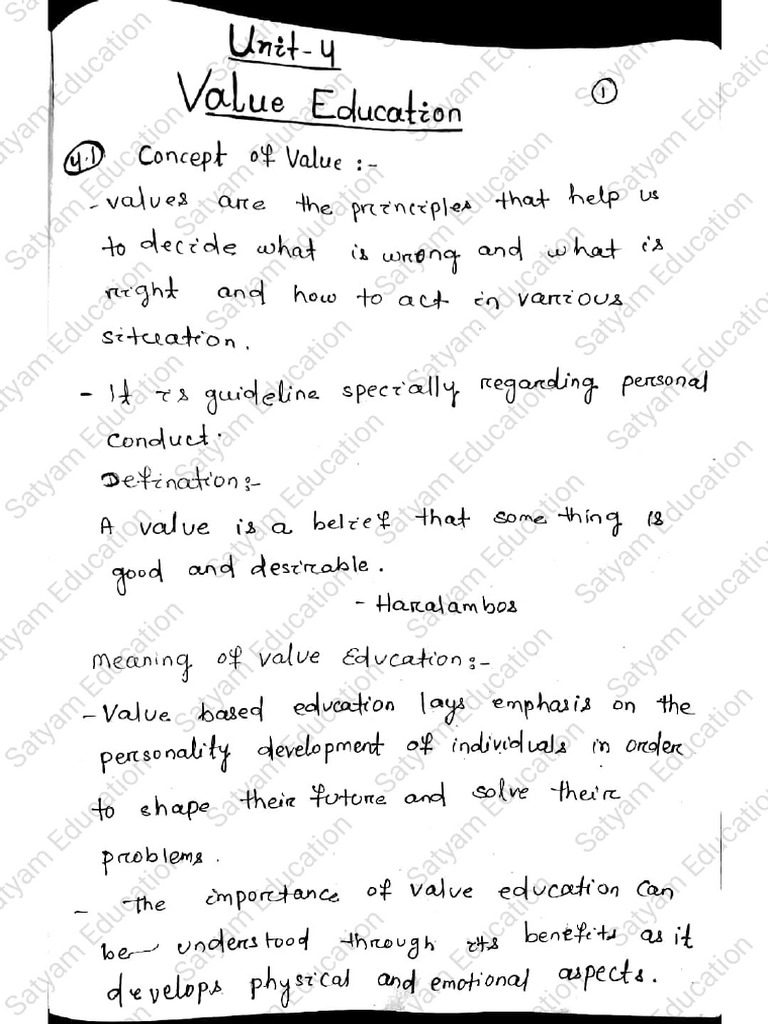 Unit-4
Value Education
1
4.1 Concept of Value :-
- values are the principles that help us
to decide what is wrong and what is
right and how to act in various
situation.
- It is guideline specially regarding personal
conduct.
Defination:-
A value is a belief that some thing is
good and desirable.
- Haralambos
Meaning of value Education:-
- Value based education lays emphasis on the
personality development of individuals in order
to shape their future and solve their
problems.
- The importance of value education can
be understood through its benefits as it
develops physical and emotional aspects.
Satyam Education